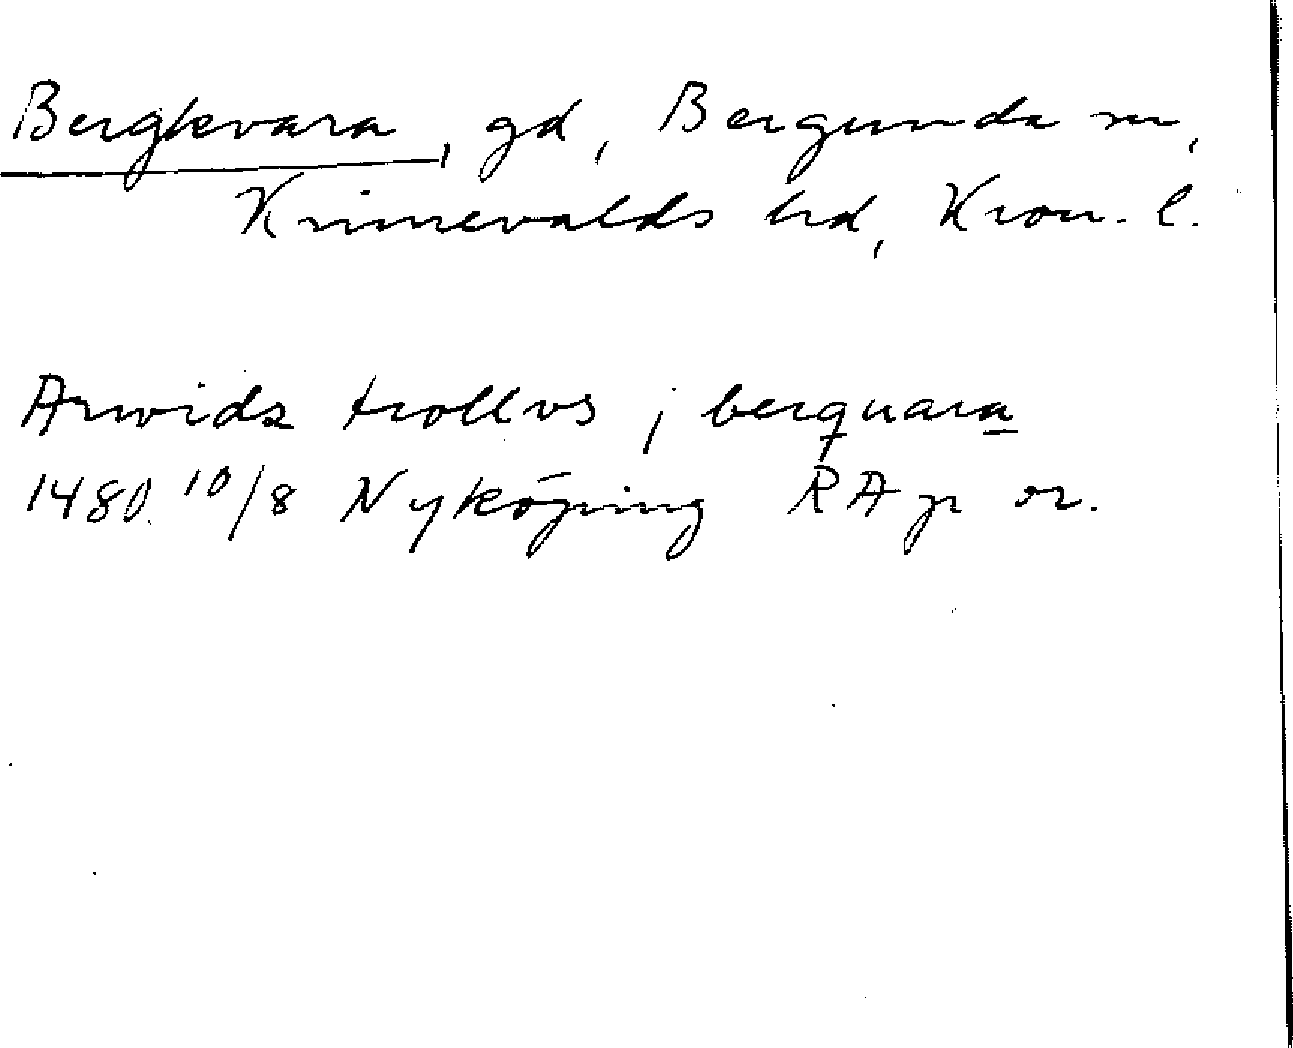 Bergkvara, gd, Bergunda sn,
Kinnevalds hd, Kron. l.
Arwids trolles, j berquara
1480 10/8 Nyköping RA p or.